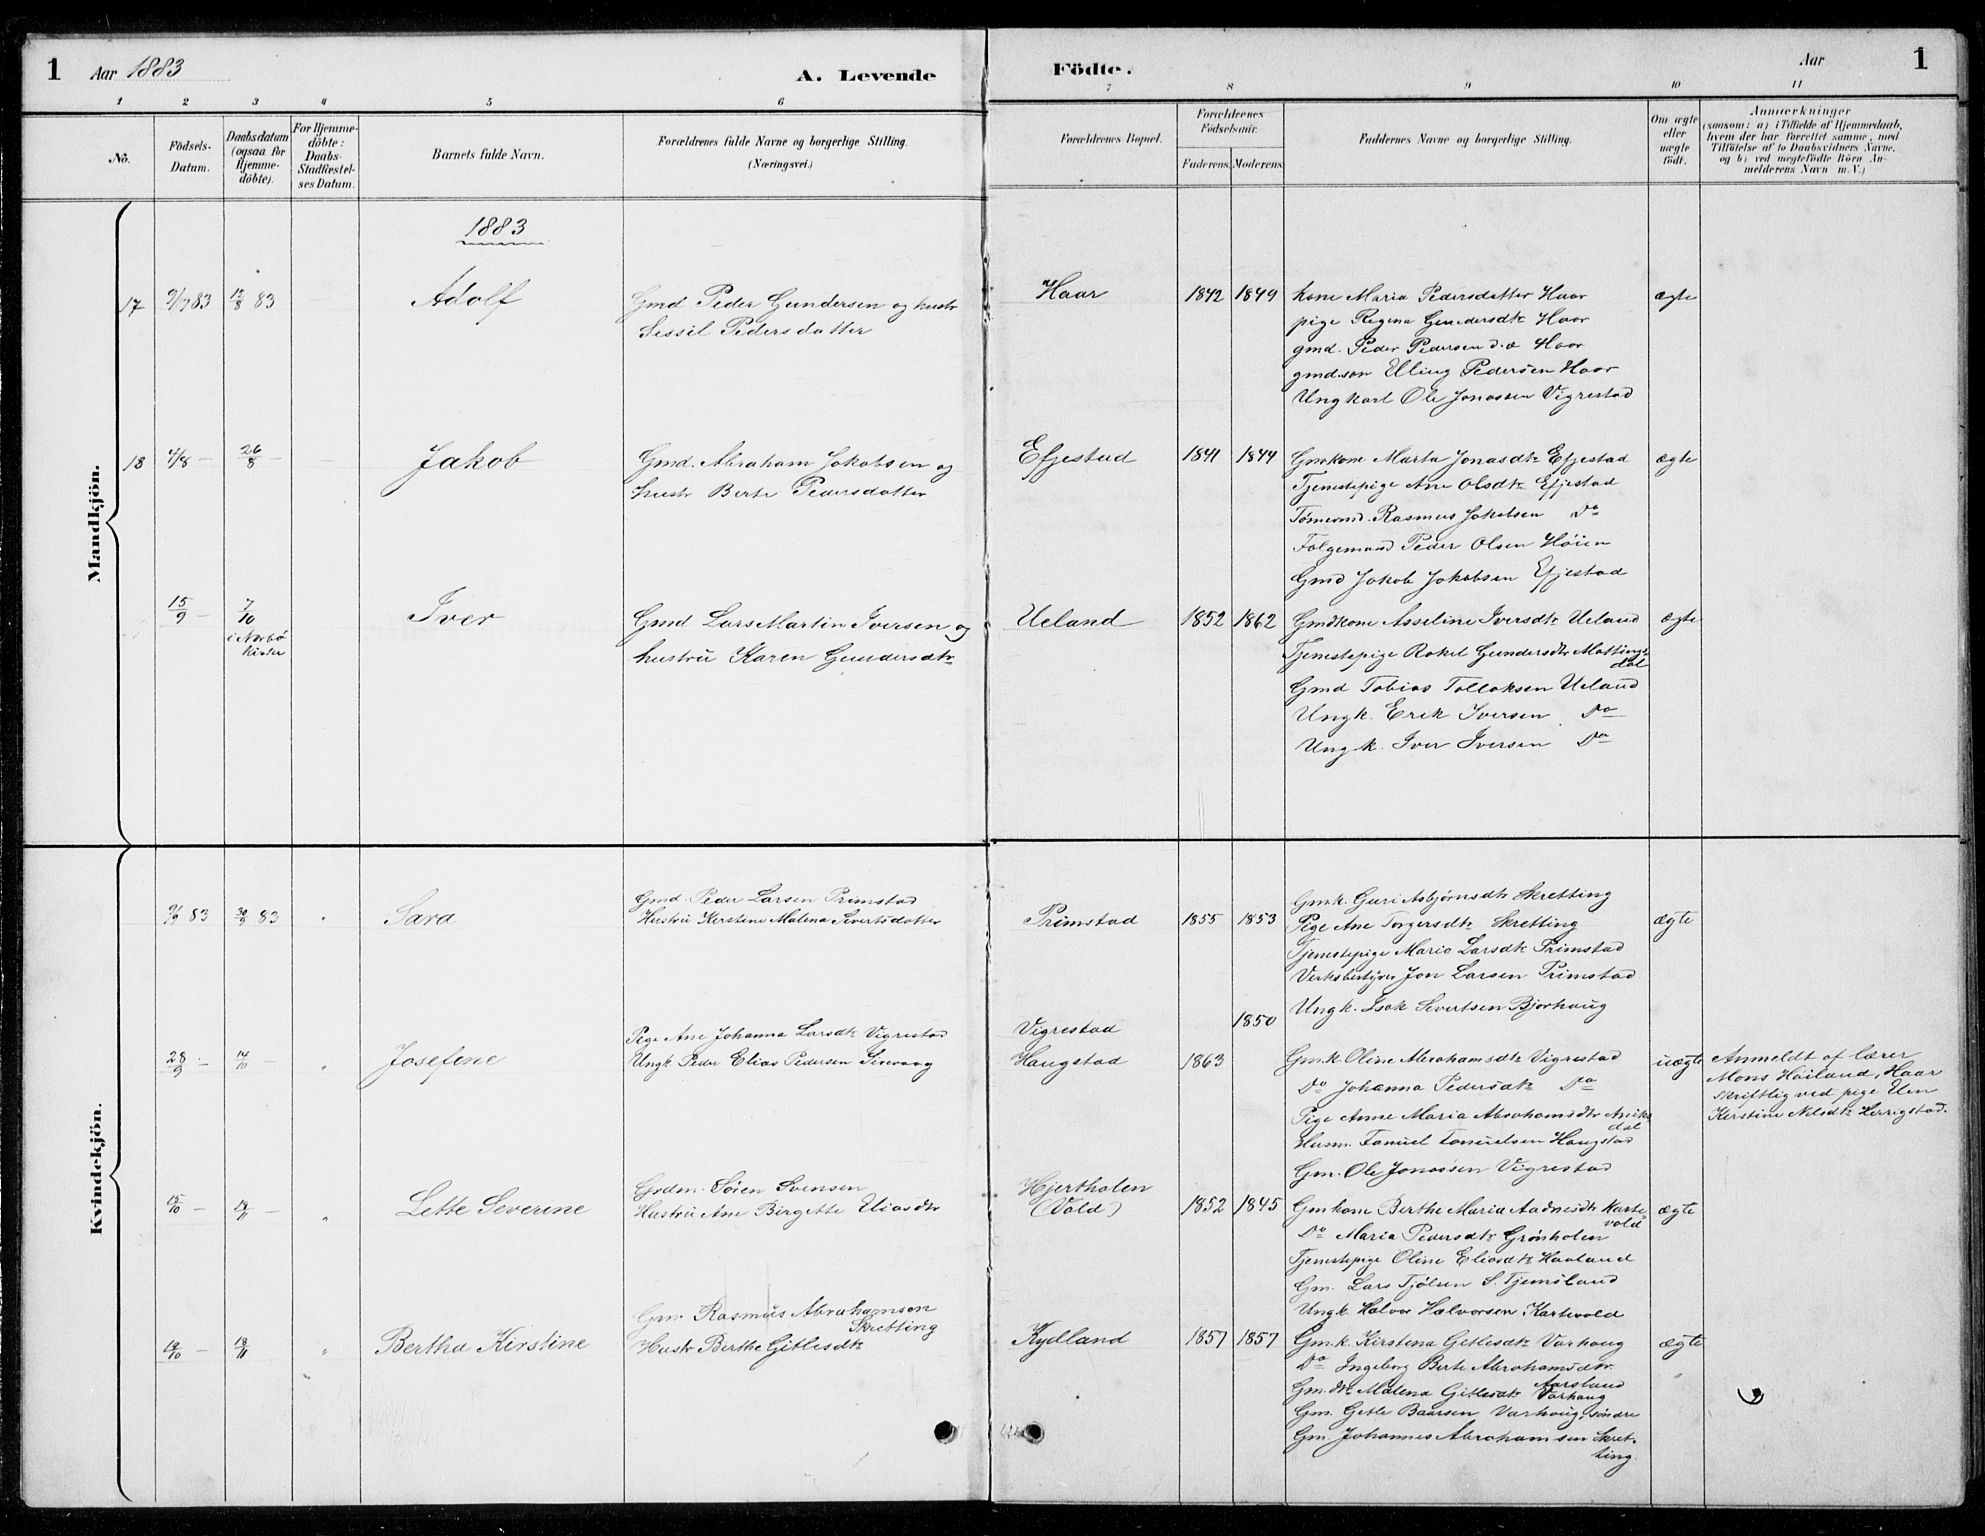 1 Aar 1883 A. Levende
Födte. Aar 1
1 2 3 4 5 6
7 8 9 10 11
No.
Födsels-
Datum.
Daabsdatum
(ogsaa for
Hjemme-
döbte).
For Hjemme-
döbte:
Daabs-
Stadfæstel-
ses Datum.
Barnets fulde Navn.
Forældrenes fulde Navne og borgerlige Stilling.
(Næringsvei.)
Forældrenes Bopæl.
Forældrenes
Födselsaar.
Faderens. Moderens.
Faddernes Navne og borgerlige Stilling.
Om ægte
eller
uægte
födt.
Anmærkninger
(saasom: a) i Tilfælde af Hjemmedaab,
hvem der har forrettet samme, med
Tilföielse af to Daabsvidners Navne,
og b) ved uægtefödte Börn An-
melderens Navn m. V.)
Mandkjön.
1883
17 9/7 83 12/8 83 Adolf
Gmd Peder Gundersen og hustr
Sessil Pedersdatter
Haar 1842 1849
kone Maria Pedersdatter Haar
pige Regina Gundersdtr Haar
gmd. Peder Pedersen d.e Haar
gmd.søn Elling Pedersen Haar
Ungkarl Ole Jonassen Vigrestad
ægte
18 4/8 — 26/8 — Jakob
Gmd. Abraham Jakobsen og
hustr Berte Pedersdatter
Efjestad 1841 1844
Gmkone Marta Jonasdtr Efjestad
Tjenestepige Ane Olsdtr Efjestad
Tømrmd. Rasmus Jakobsen Do
Følgemand Peder Olsen Höien
Gmd Jakob Jakobsen Efjestad
ægte
15/9 — 7/10
i Nærbø
Kirke
Iver
Gmd Lars Martin Iversen og
hustru Karen Gundersdtr
Ueland 1852 1862
Gmdkone Asseline Iversdtr Ueland
Tjenestepige Rakel Gundersdtr Mattings-
dal
Gmd Tobias Tollaksen Ueland
Ungk. Erik Iversen Do
Ungk. Iver Iversen Do
ægte
Kvindekjön.
9/9 83 30/9 83 Sara
Gmd. Peder Larsen Primstad
Hustru Kerstine Malena Sivertsdatter
Primstad 1855 1853
Gmk. Guri Asbjørnsdtr Skretting
Pige Ane Torgersdtr Skretting
Tjenestepige Maria Larsdtr Primstad
Verksbestyrer Jon Larsen Primstad
Ungk. Isak Sivertsen Bjorhaug
ægte
28/9 — 14/10 — Josefene
Pige Ane Johanna Larsdtr Vigrestad
Ungk. Peder Elias Pedersen Sirevaag
Vigrestad 1850
Haugstad 1863
Gm.k. Oline Abrahamsdtr Vigrestad
Do Johanna Pedersdtr Do
Pige Anne Maria Abrahamsdtr Aniks
dal
Husm. Tanuel Tanuelsen Haugstad
Gm. Ole Jonassen Vigrestad
uægte
Anmeldt af lærer
Mons Høiland, Haar
skriftlig ved pige Elen
Kerstine Nilsdtr Herrigstad.
15/10 — 14/11 — Lette Severine
Grdm. Sören Svensen
Hustru Ane Birgette Eliasdtr
Hjertholen
(Vold) 1852 1845
Gmkone Berthe Maria Aadnesdtr Karte-
vold
Do Maria Pedersdtr Grønholen
Tjenestepige Oline Eliasdtr Haaland
Gm. Lars Tjölsen S. Tjemsland
Ungk. Halvor Halvorsen Kartevold
ægte
14/10 — 18/11 — Bertha Kirstine
Gm. Rasmus Abrahamsen
Skretting
Hustr Berthe Gitlesdtr
Kydland 1857 1857
Gm.k. Kirstena Gitlesdtr Varhaug
Do Ingeborg Berte Abrahamsdtr
Aarsland
Gm.dtr Malena Gitlesdtr Varhaug
Gm. Gitle Baarsen Varhaug, søndre
Gm. Johannes Abrahamsen Skret-
ting.
ægte